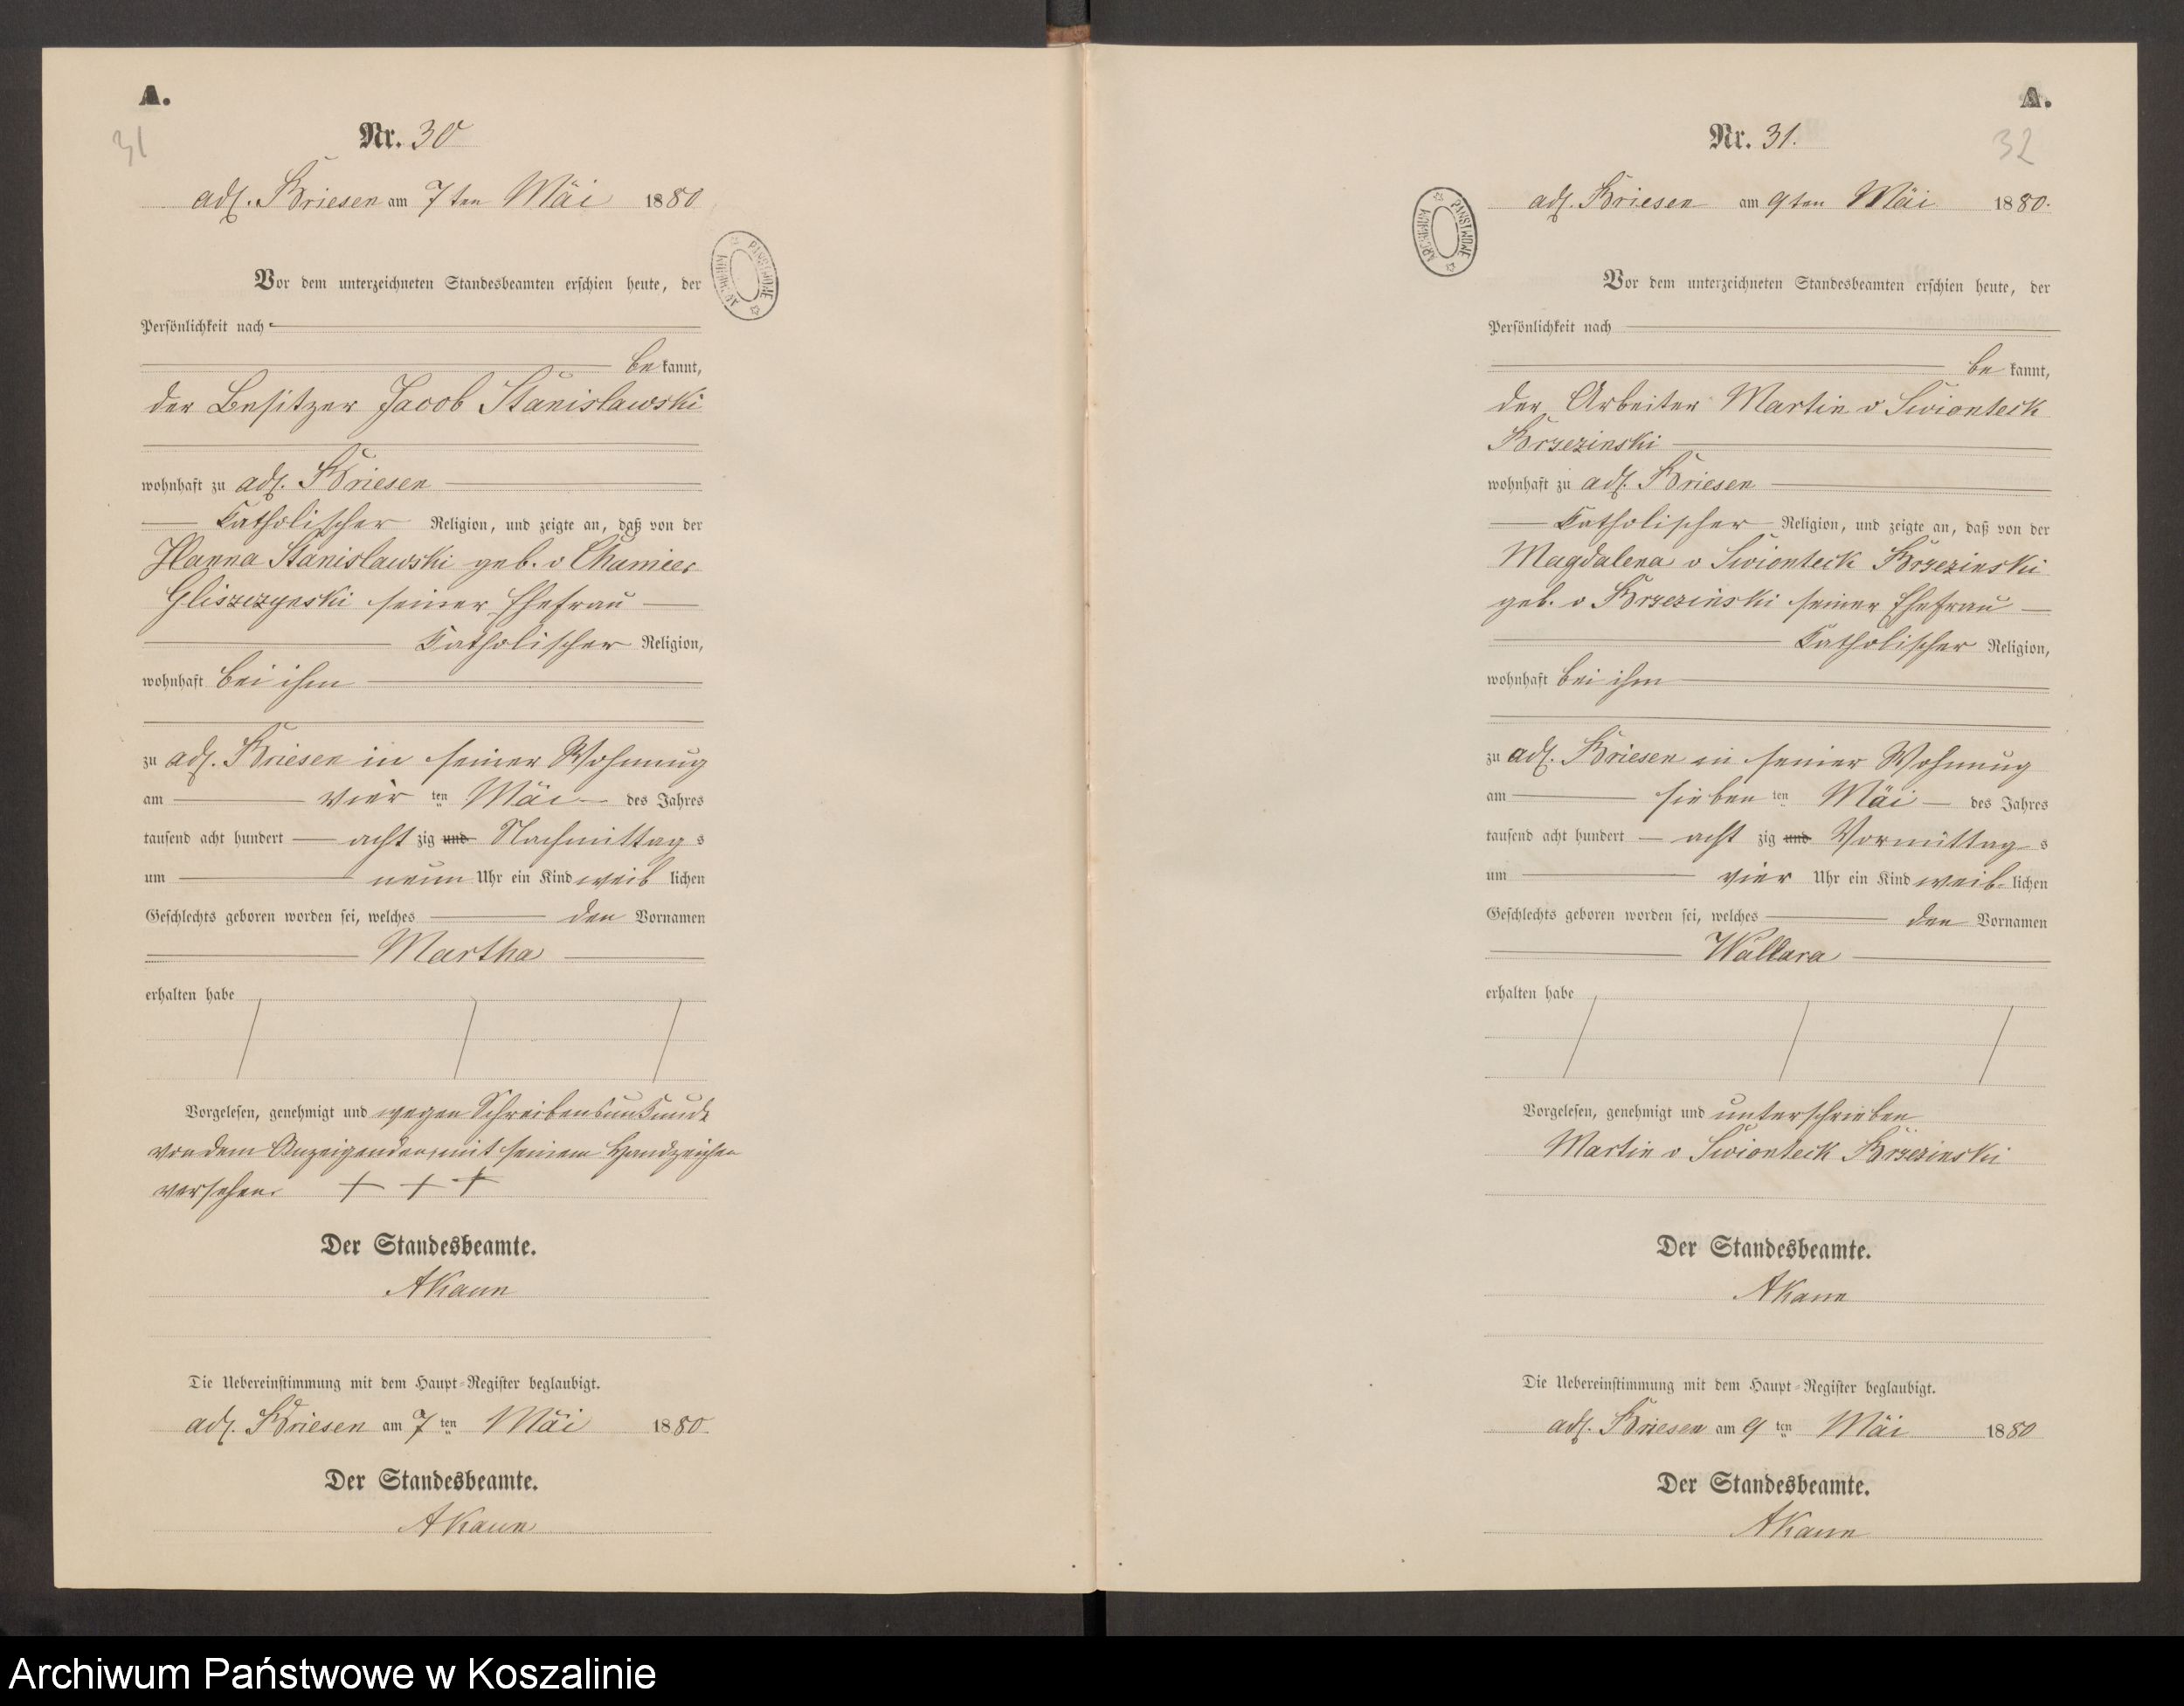 A.
31
Nr. 30
adl. Briesen am 7ten Mäi 1880
Vor dem unterzeichneten Standesbeamten erschien heute, der
Persönlichkeit nach
be kannt,
der Besitzer Jacob Stanislawski
wohnhaft zu adl. Briesen
Katholischer Religion, und zeigte an, daß von der
Hanna Stanislawski geb. v Chamier
Gliszczynski seiner Ehefrau
Katholischer Religion,
wohnhaft bei ihm
zu adl. Briesen in seiner Wohnung
am vier ten Mäi des Jahres
tausend acht hundert acht zig und Nachmittag s
um neun Uhr ein Kind weib lichen
Geschlechts geboren worden sei, welches den Vornamen
Martha
erhalten habe
Vorgelesen, genehmigt und wegen Schreibensunkunde
von dem Anzeigenden mit seinem Handzeichen
versehen. + + +
Der Standesbeamte.
AKann
Die Uebereinstimmung mit dem Haupt-Register beglaubigt.
adl. Briesen am 7 ten Mäi 1880.
Der Standesbeamte.
AKann
ARCHIWUM PAŃSTWOWE
A.
32
Nr. 31.
adl. Briesen am 9ten Mäi 1880.
Vor dem unterzeichneten Standesbeamten erschien heute, der
Persönlichkeit nach
be kannt,
der Arbeiter Martin v Swionteck
Brzezinski
wohnhaft zu adl. Briesen
Katholischer Religion, und zeigte an, daß von der
Magdalena v Swionteck Brzezinski
geb. v Brzezinski seiner Ehefrau
Katholischer Religion,
wohnhaft bei ihm
zu adl. Briesen in seiner Wohnung
am sieben ten Mäi des Jahres
tausend acht hundert acht zig und Vormittag s
um vier Uhr ein Kind weib lichen
Geschlechts geboren worden sei, welches den Vornamen
erhalten habe
Vorgelesen, genehmigt und unterschrieben
Martin v Swionteck Brzezinski
Der Standesbeamte.
AKann
Die Uebereinstimmung mit dem Haupt-Register beglaubigt.
adl. Briesen am 9 ten Mäi 1880
Der Standesbeamte.
AKann
ARCHIWUM PAŃSTWOWE
Archiwum Państwowe w Koszalinie